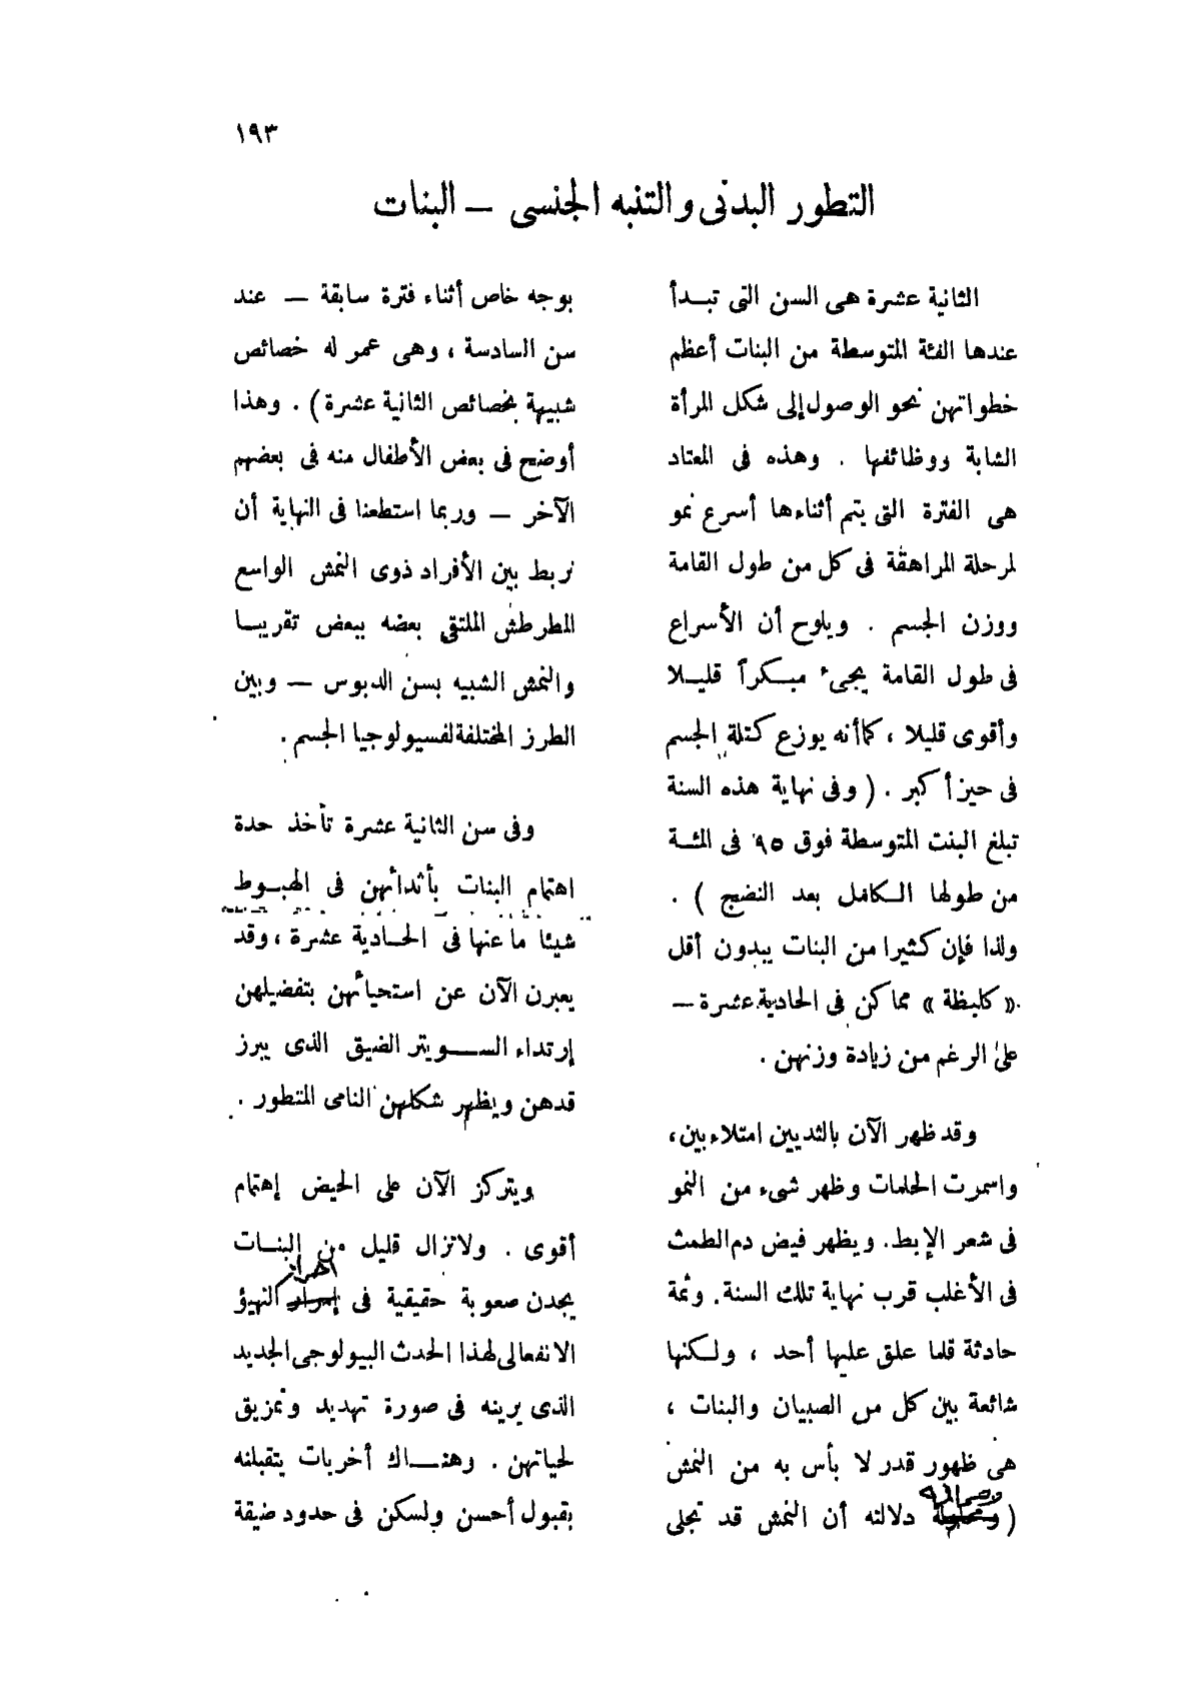 ١٩٣
التطور البدنى والتنبه الجنسى — البنات
الثانية عشرة هى السن التى تبدأ
عندها الفئة المتوسطة من البنات أعظم
خطواتهن نحو الوصول إلى شكل المرأة
الشابة ووظائفها . وهذه فى المعتاد
هى الفترة التى يتم أثناءها أسرع نمو
لمرحلة المراهقة فى كل من طول القامة
ووزن الجسم . ويلوح أن الأسراع
فى طول القامة يجىء مبكراً قليلا
وأقوى قليلا ، كما أنه يوزع كتلة الجسم
فى حيز أكبر . ( وفى نهاية هذه السنة
تبلغ البنت المتوسطة فوق ٩٥ فى المئة
من طولها الكامل بعد النضج ) .
ولذا فإن كثيرا من البنات يبدون أقل
« كلبظة » مما كن فى الحادية عشرة —
على الرغم من زيادة وزنهن .
وقد ظهر الآن بالثديين امتلاء بين ،
واسمرت الحلمات وظهر شىء من النمو
فى شعر الإبط . ويظهر فيض دم الطمث
فى الأغلب قرب نهاية تلك السنة . وثمة
حادثة قلما علق عليها أحد ، ولكنها
شائعة بين كل من الصبيان والبنات ،
هى ظهور قدر لا بأس به من النمش
( دلالته أن النمش قد تجلى
بوجه خاص أثناء فترة سابقة — عند
سن السادسة ، وهى عمر له خصائص
شبيهة بخصائص الثانية عشرة ) . وهذا
أوضح فى بعض الأطفال منه فى بعضهم
الآخر — وربما استطعنا فى النهاية أن
نربط بين الأفراد ذوى النمش الواسع
المطرطش الملتقى بعضه ببعض تقريبا
والنمش الشبيه بسن الدبوس — وبين
الطرز المختلفة لفسيولوجيا الجسم .
وفى سن الثانية عشرة تأخذ حدة
اهتمام البنات بأثدائهن فى الهبوط
شيئا ما عنها فى الحادية عشرة ، وقد
يعبرن الآن عن استحيائهن بتفضيلهن
إرتداء السويتر الضيق الذى يبرز
قدهن ويظهر شكلهن النامى المتطور .
ويتركز الآن على الحيض إهتمام
أقوى . ولاتزال قليل من البنات
يجدن صعوبة حقيقية فى إحراز التهيؤ
الانفعالى لهذا الحدث البيولوجى الجديد
الذى يرينه فى صورة تهديد وتمزيق
لحياتهن . وهناك أخريات يتقبلنه
بقبول أحسن ولكن فى حدود ضيقة